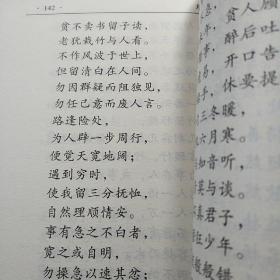 142
贫不卖书留子读，
老犹栽竹与人看。
不作风波于世上，
但留清白在人间。
勿因群疑而阻独见，
勿任己意而废人言。
路逢险处，
为人辟一步周行，
便觉天宽地阔；
遇到穷时，
使我留三分抚恤，
自然理顺情安。
事有急之不白者，
宽之或自明，
勿操急以速其忿；
贫人顾
醉后吐
开口告
休要提
冬暖，
六月寒。
知音听，
与谈。
君子，
少年。
错，